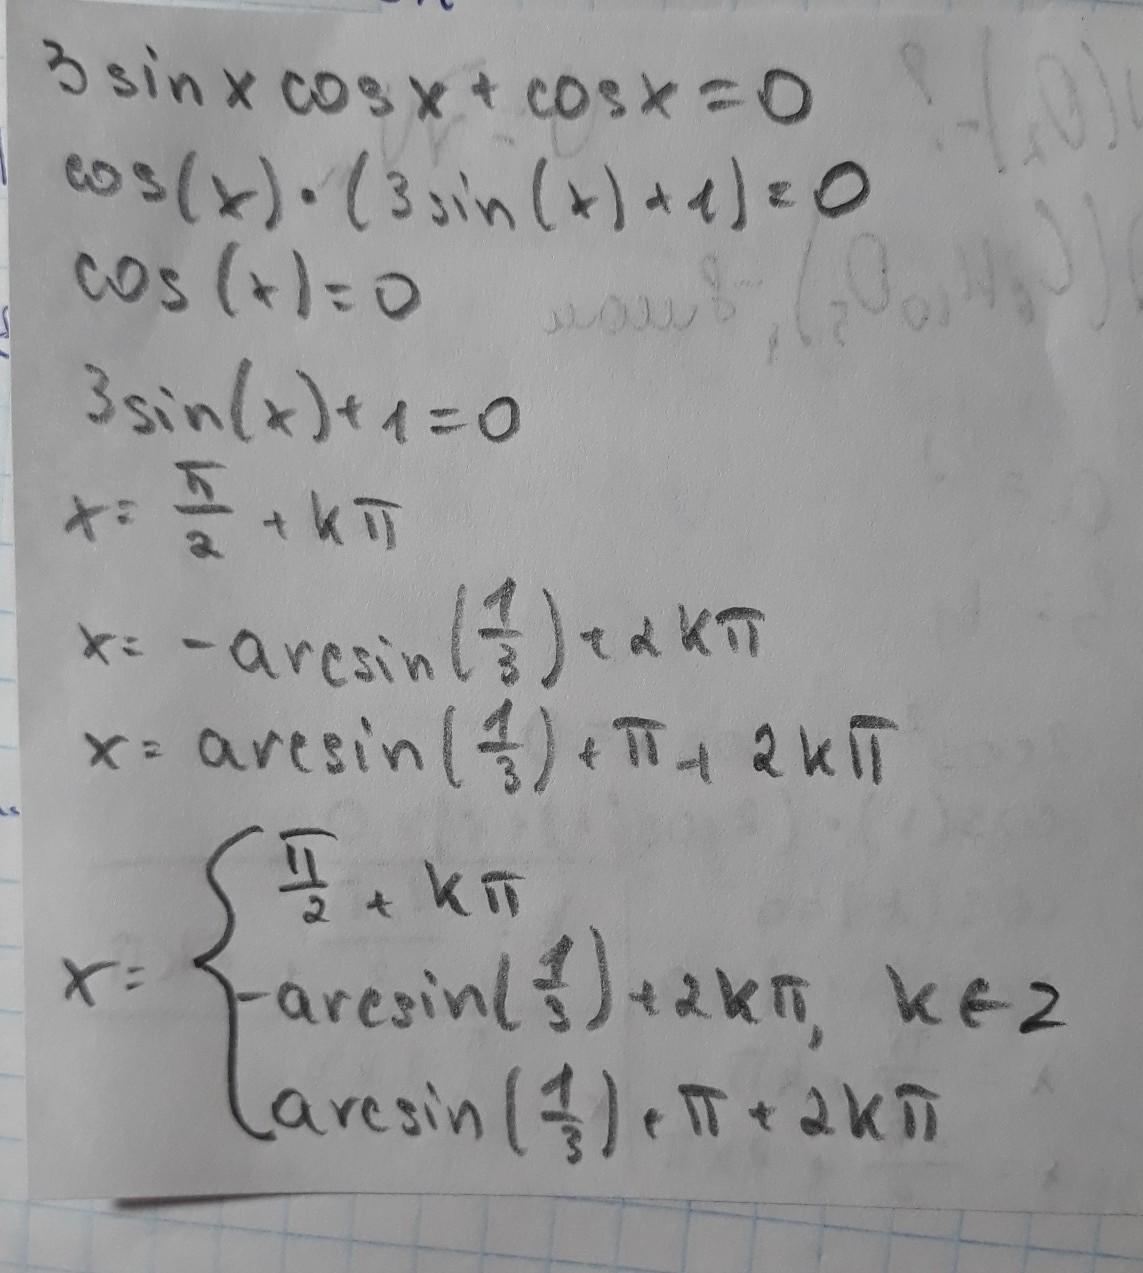 3 sin x cos x + cos x = 0
cos(x) · (3 sin(x) + 1) = 0
cos(x) = 0
3 sin(x) + 1 = 0
x = π/2 + kπ
x = -arcsin(1/3) + 2kπ
x = arcsin(1/3) + π + 2kπ
x = { π/2 + kπ
-arcsin(1/3) + 2kπ, k ∈ Z
arcsin(1/3) + π + 2kπ